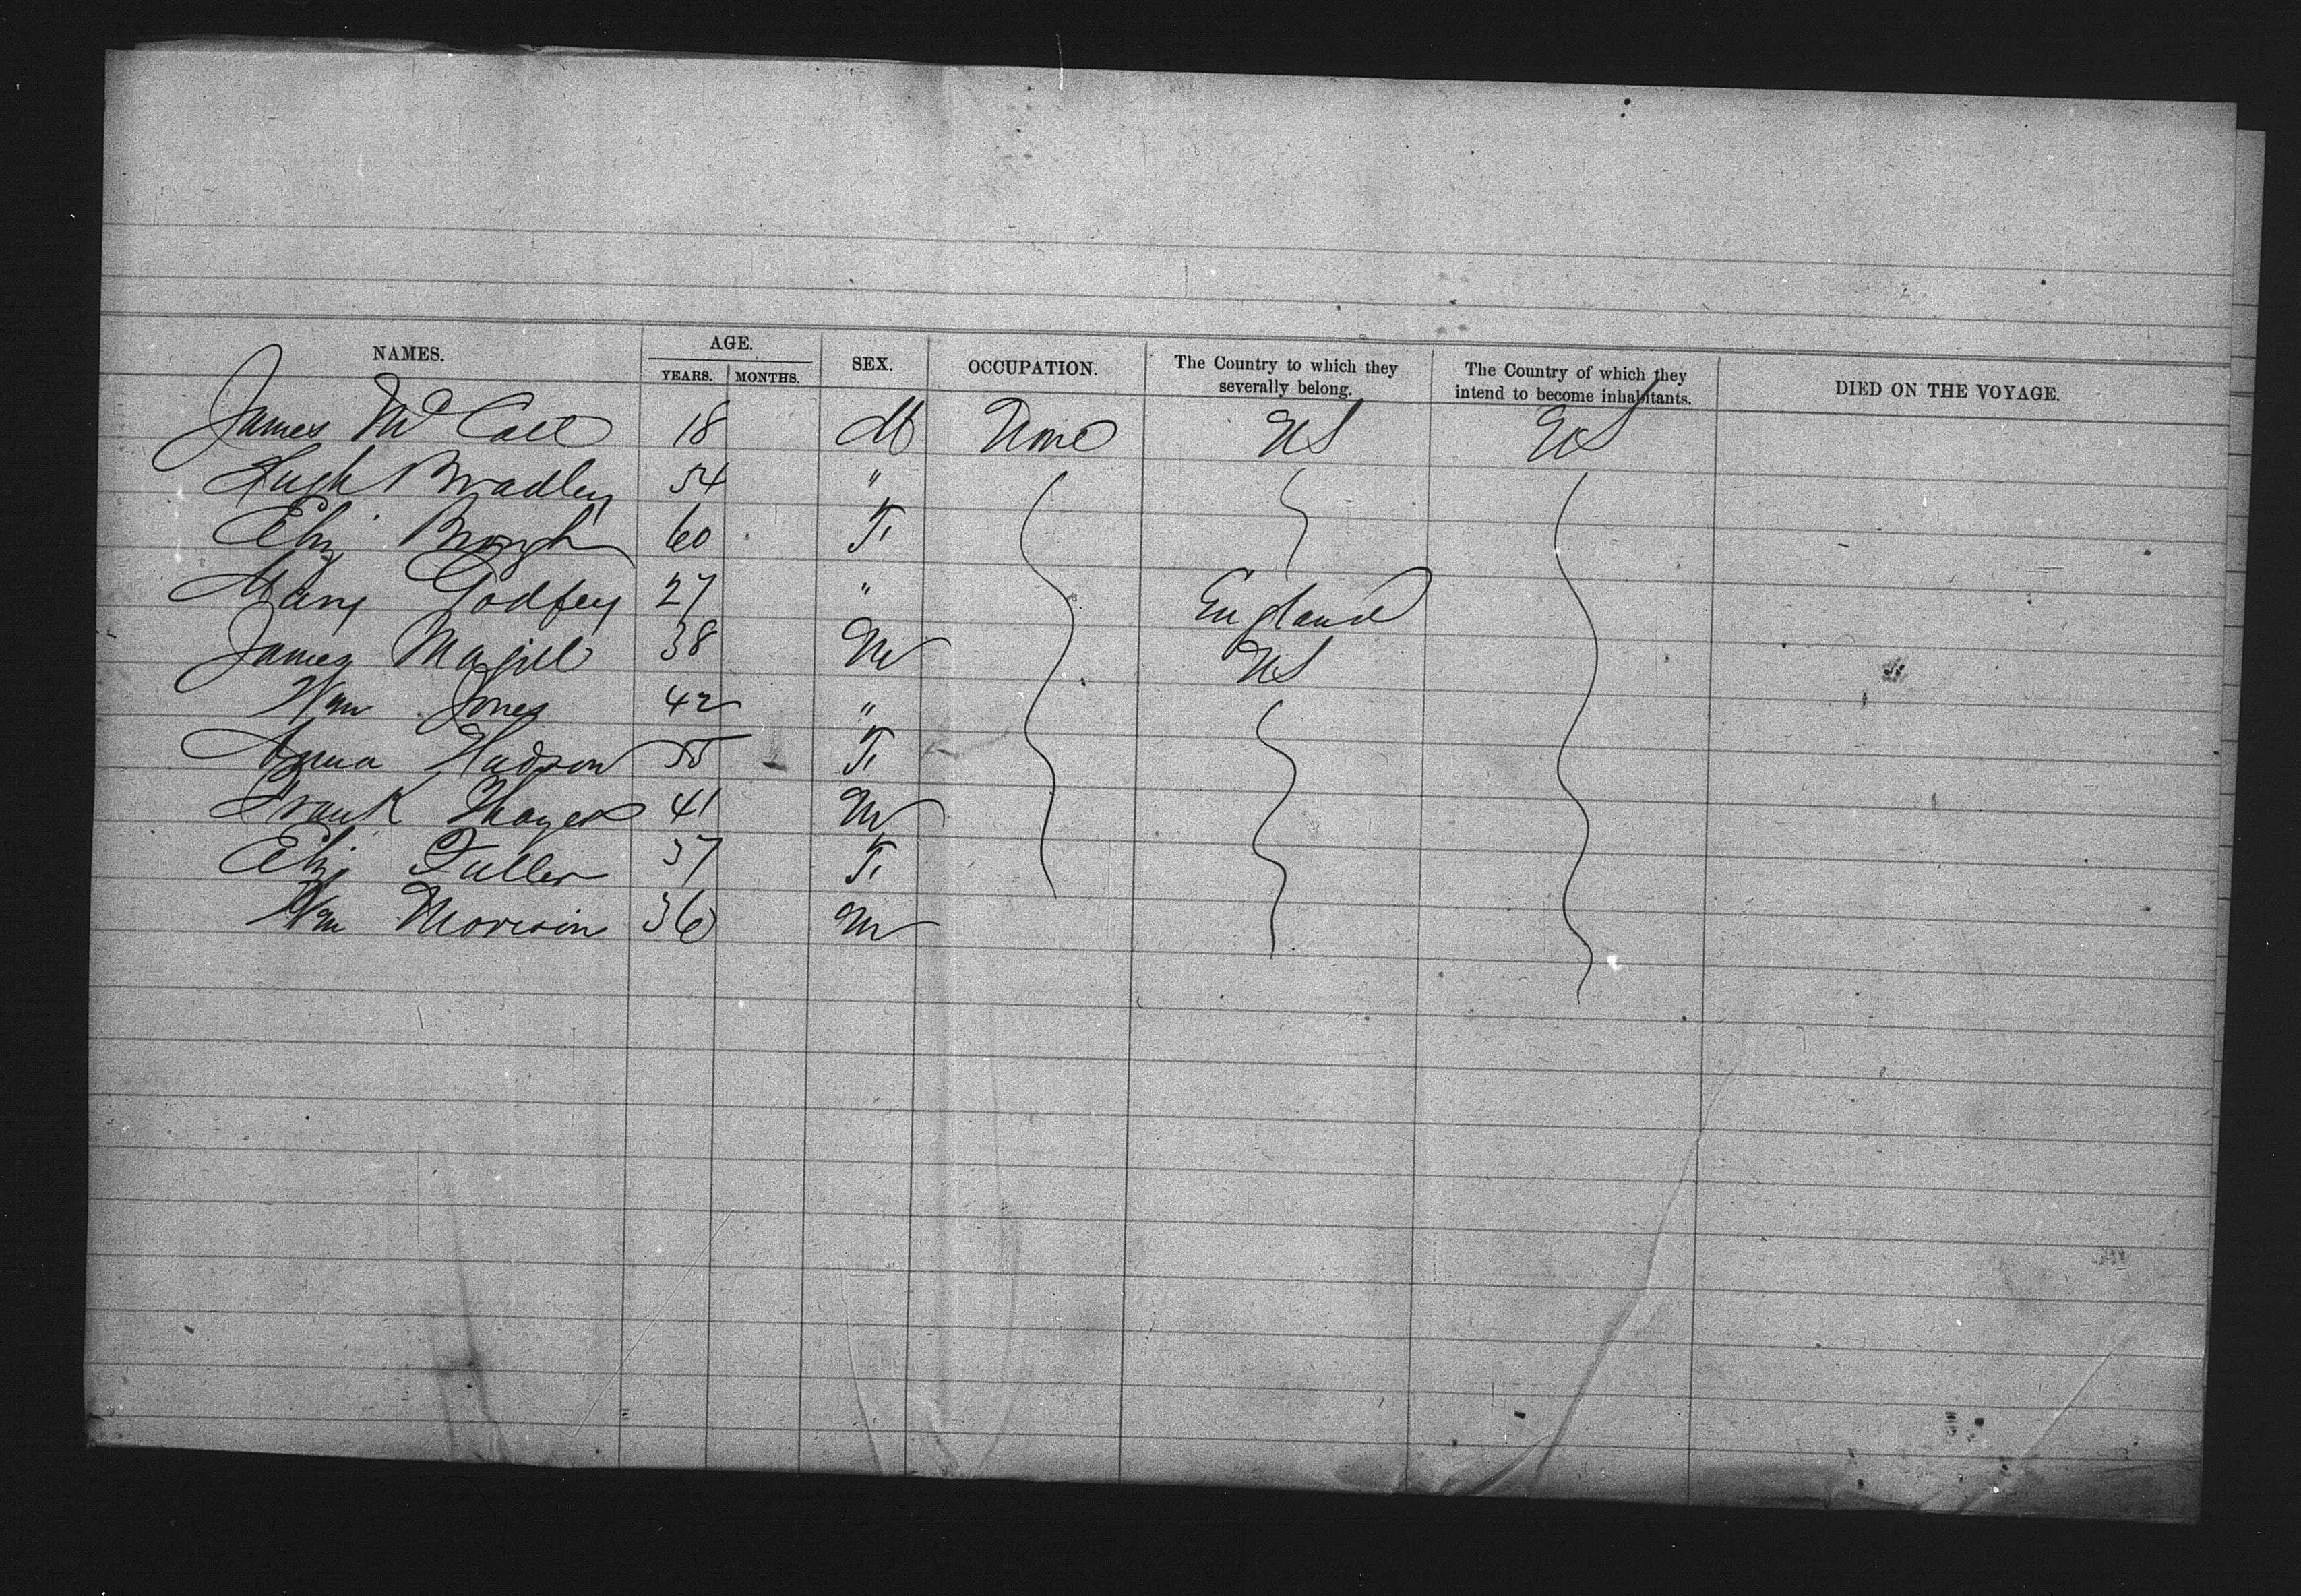 NAMES. AGE. SEX. OCCUPATION. The Country to which they severally belong. The Country of which they intend to become inhabitants. DIED ON THE VOYAGE.
YEARS. MONTHS.
James McCall 18 M None US US
Hugh Bradley 54 "
Eliz Brough 60 F
Mary Godfey 27 " England
James Magill 38 M US
Wm Jones 42 "
Anna Hudson 55 F
Frank Thayer 41 M
Eliz Fuller 37 F
Wm Morison 36 M